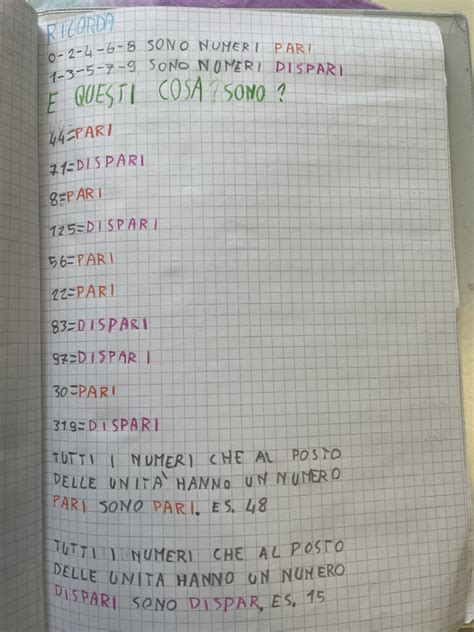 RICORDA
0-2-4-6-8 SONO NUMERI PARI
1-3-5-7-9 SONO NUMERI DISPARI
E QUESTI COSA SONO?
44=PARI
71=DISPARI
8=PARI
125=DISPARI
56=PARI
22=PARI
83=DISPARI
97=DISPARI
30=PARI
319=DISPARI
TUTTI I NUMERI CHE AL POSTO
DELLE UNITÀ HANNO UN NUMERO
PARI SONO PARI. ES. 48
TUTTI I NUMERI CHE AL POSTO
DELLE UNITÀ HANNO UN NUMERO
DISPARI SONO DISPAR, ES. 15